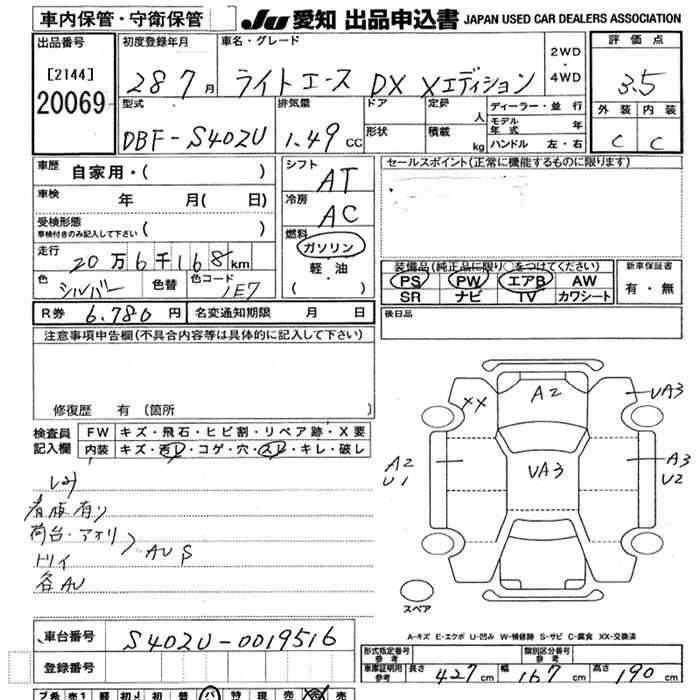 車内保管・守衛保管
JU 愛知 出品申込書 JAPAN USED CAR DEALERS ASSOCIATION
出品番号
[2144]
20069
初度登録年月
28 7 月
車名・グレード
ライトエース DX Xエディション
2WD
・
4WD
評価点
3.5
外装 内装
C C
型式
DBF-S402U
排気量
1.49 CC
ドア
形状
定員
人
積載
kg
ディーラー・並行
モデル年式 年
ハンドル 左・右
車歴 自家用・( )
車検 年 月( 日)
受検形態
車検付きのみ記入して下さい ( )
走行 20万6千168km
色 シルバー 色替 色コード 1E7
シフト AT
冷房 AC
燃料
ガソリン
軽・油
( )
セールスポイント(正常に機能するものに限ります)
装備品(純正品に限り○をつけてください)
PS PW エアB AW
SR ナビ TV カワシート
新車保証書
有・無
R券 6,780 円 名変通知期限 月 日
後日品
注意事項申告欄(不具合内容等は具体的に記入して下さい)
修復歴 有 〔箇所 〕
検査員記入欄
FW キズ・飛石・ヒビ割・リペア跡・X要
内装 キズ・汚レ・コゲ・穴・スレ・キレ・破レ
看板有り
荷台・アオリ
トリイ
AU P
各AU
XX
A2
UA3
A2
U1
UA3
A3
U2
スペア
A-キズ E-エクボ U-凹み W-補修跡 S-サビ C-腐食 XX-交換済
車台番号 S402U-0019516
登録番号
形式指定番号
参考
類別区分番号
参考
車庫証明用
参考
長さ 427 cm 幅 167 cm 高さ 190 cm